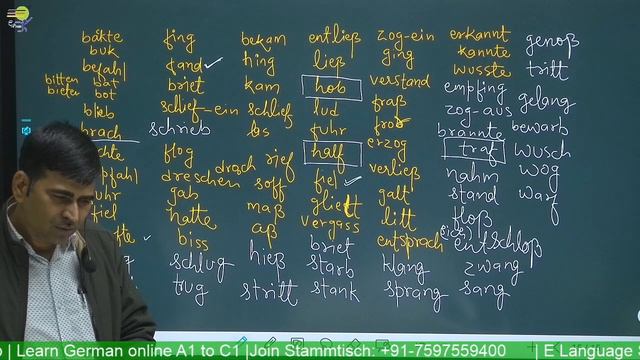 bakte fing bekam entließ zog-ein erkannt
buk fand hing ließ ging kannte genoß
befahl briet kam hob verstand wusste tritt
bitten bat
bieten bot
blieb schlief-ein schlief lud fraß empfing
brach schrieb los fuhr fror zog-aus gelang
flog drosch rief half erzog brannte bewarb
dreschen soff fiel verließ traf wusch
gab maß gliett galt nahm wog
hatte aß vergass litt stand warf
biss hieß briet entsprach floß
schlug starb klang (sich) entschloß
trug stritt stank sprang zwang
sang
| Learn German online A1 to C1 |Join Stammtisch: +91-7597559400 | E Language